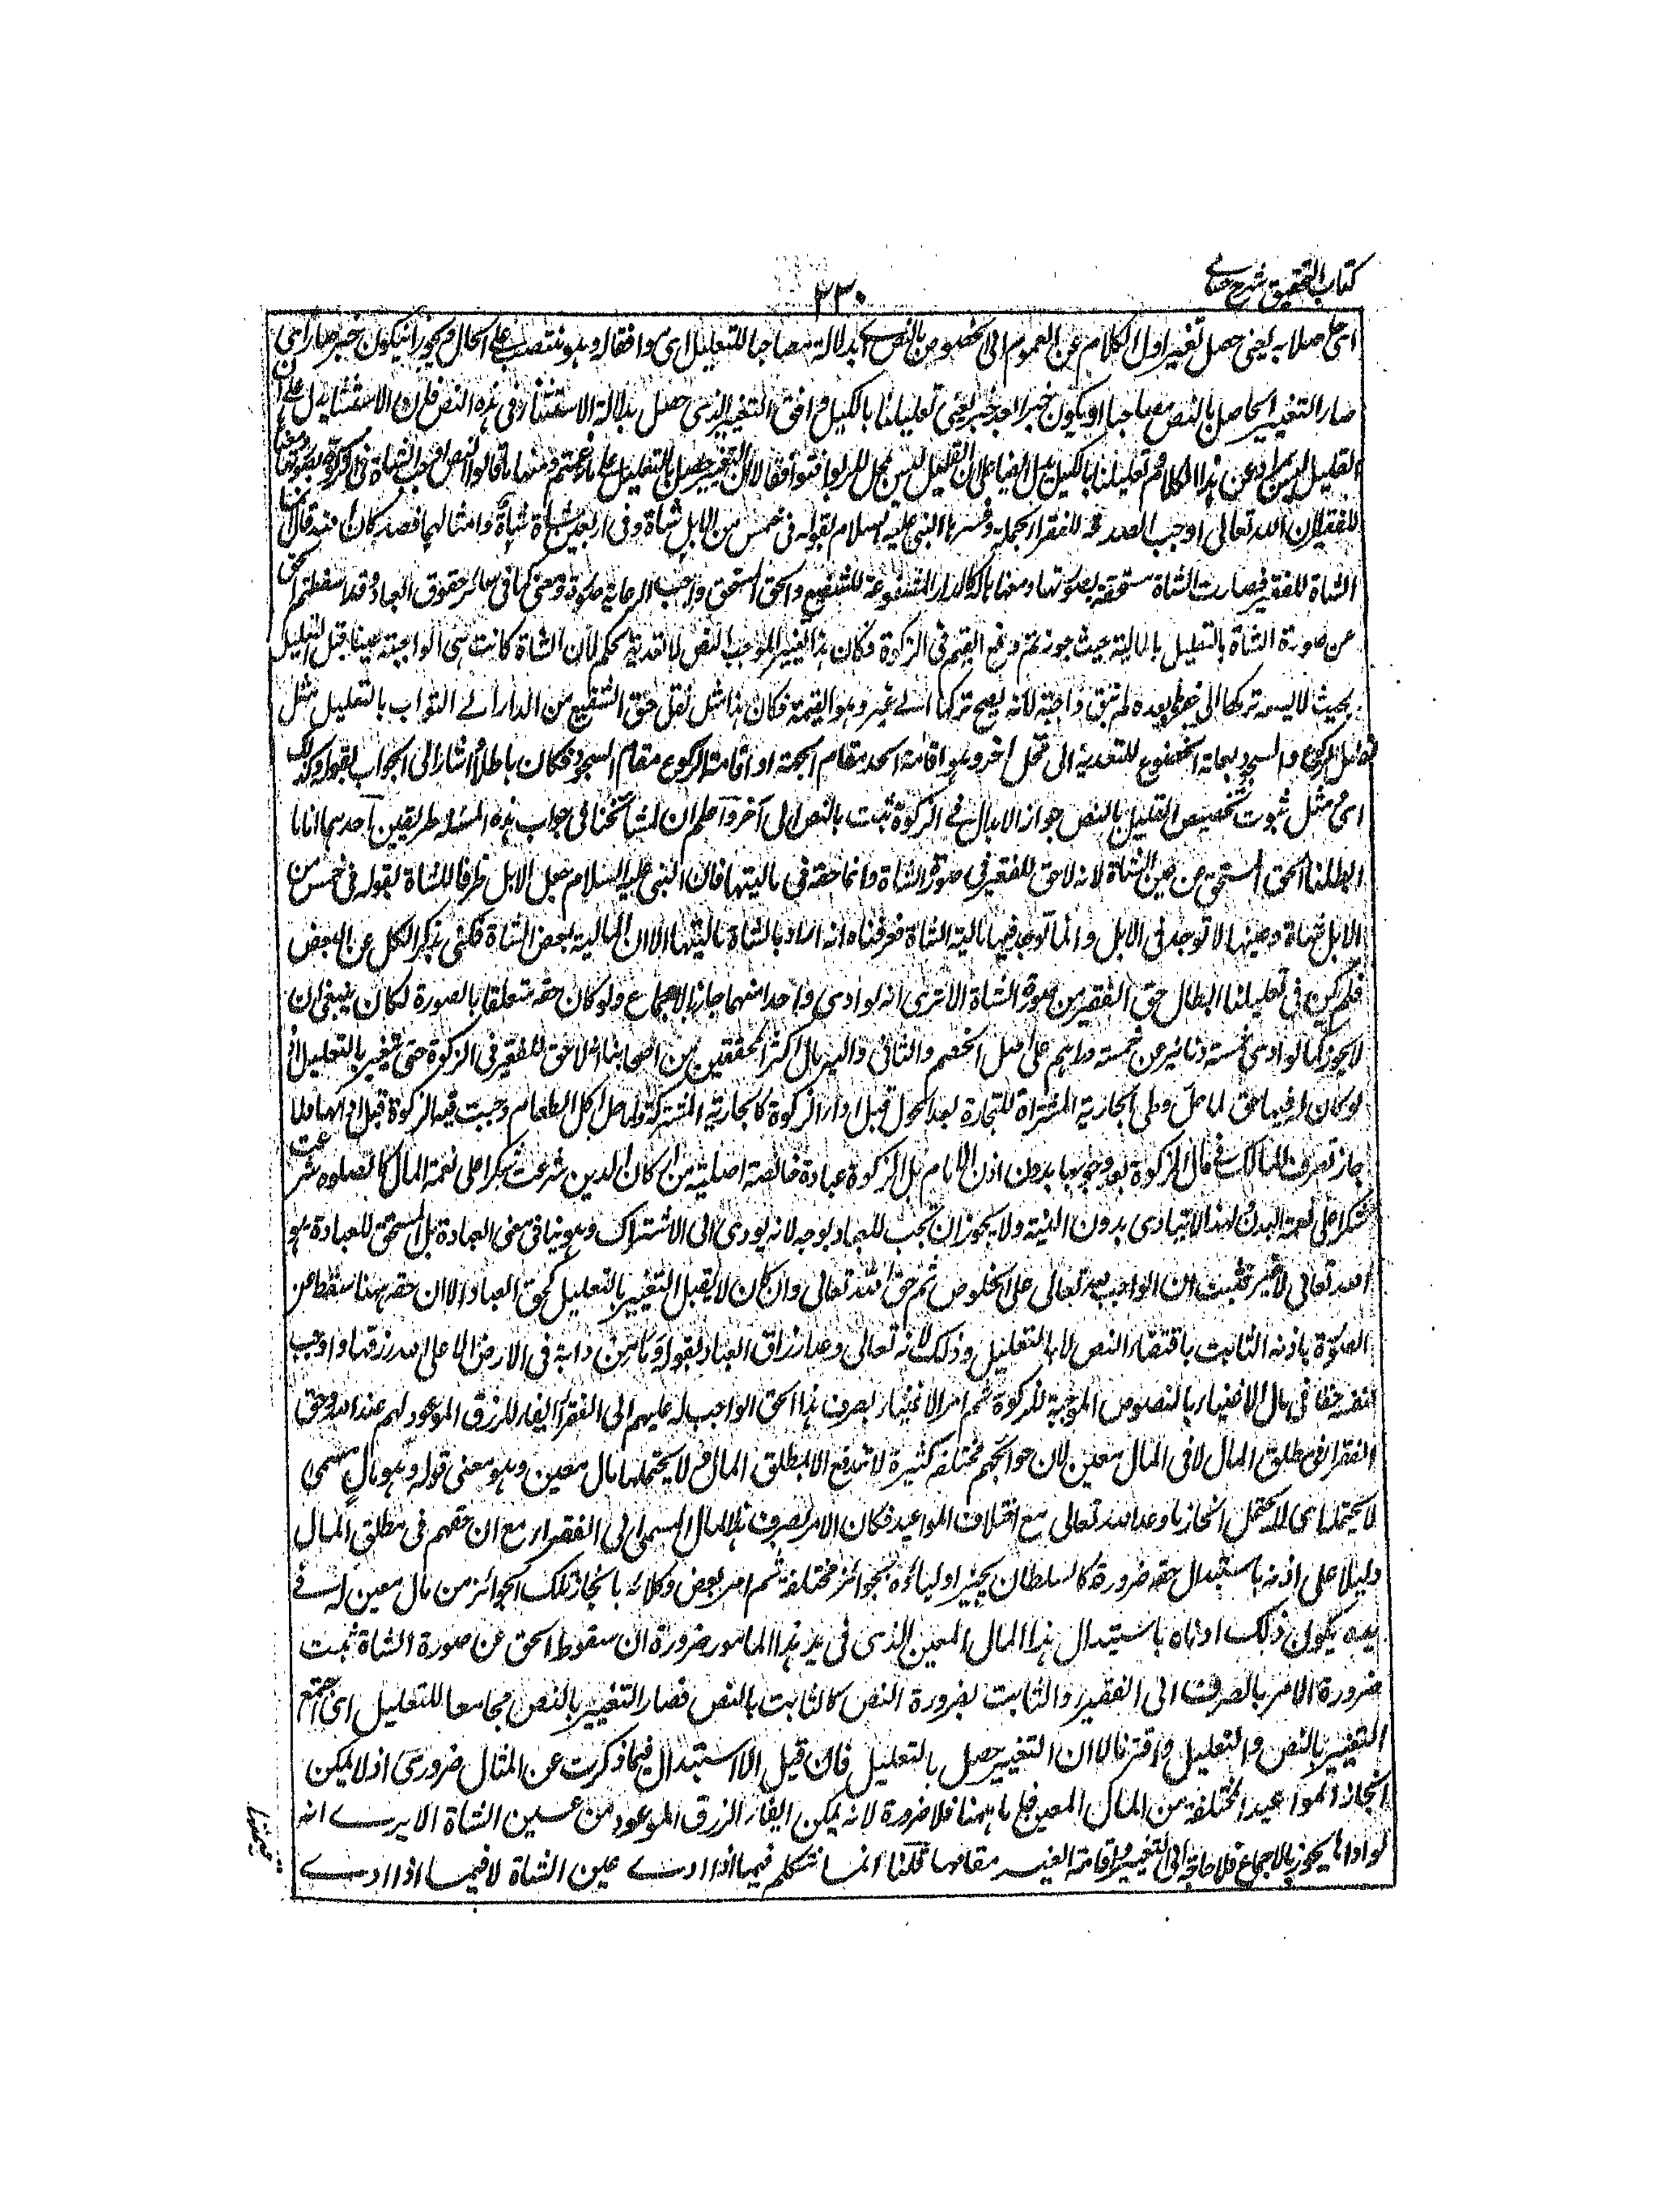 كتاب التحقيق شرح حسامي
٢٣٠
اى حاصلا به يعنى حصل تغيير اول الكلام عن العموم الى الخصوص بالنص اى بدلالته مصاحبا للتعليل اى موافقا له وهو منتصب على الحال ويجوز ان يكون خبر صار اى
صار التغيير الحاصل بالنص مصاحبا او يكون خبرا بعد خبر يعنى تعليلنا بالكيل وافق التغيير الذى حصل بدلالة الاستثناء فى هذه النص فان الاستثناء يدل على ان
القليل ليس بمراد عن هذا الكلام ثم تعليلنا بالكيل يدل ايضا على ان القليل ليس بمحل للربوا فتوافقا لا ان التغيير حصل بالتعليل على ما زعمتم ومنها ما قالوا النص اوجب الشاة فى الزكوة بصورتها ومعناها
للفقير لان الله تعالى اوجب الصدقة للفقراء مجملة وفسرها النبى عليه السلام بقوله فى خمس من الابل شاة وفى اربعين شاة شاة وامثالهما فصار كان الله قال انما
الشاة للفقير فصارت الشاة مستحقة بصورتها ومعناها كالدار المشفوعة للشفيع والحق المستحق واجب الرعاية صورة ومعنى كما فى سائر حقوق العباد وقد اسقطتم الحق
عن صورة الشاة بالتعليل بالمالية حيث جوزتم دفع القيم فى الزكوة فكان هذا تغييرا لموجب النص لا تعدية لحكم لان الشاة كانت هى الواجبة عينا قبل التعليل
بحيث لا يسعه تركها الى غيرها وبعده لم تبق واجبة لانه يصح تركها الى غيره وهو القيمة فكان هذا مثل نقل حق الشفيع من الدار الى الثواب بالتعليل مثل
تعليل الركوع والسجود بعلة الخضوع للتعدية الى محل اخر وهو اقامة الخد مقام الجبهة او اقامة الركوع مقام السجود فكان باطلا اشار الى الجواب بقوله وكذلك
اى مثل ثبوت تخصيص القليل بالنص جواز الابدال فى الزكوة ثبت بالنص الى آخره واعلم ان لمشائخنا فى جواب هذه المسئلة طريقين احدهما انا ما
ابطلنا الحق المستحق عن عين الشاة لانه لا حق للفقير فى صورة الشاة وانما حقه فى ماليتها فان النبى عليه السلام جعل الابل ظرفا للشاة بقوله فى خمس من
الابل شاة وعينها لا توجد فى الابل وانما توجد فيها مالية الشاة فعرفنا انه اراد بالشاة ماليتها الا ان المالية بعض الشاة فكنى بذكر الكل عن البعض
فلم يكن فى تعليلنا ابطال حق الفقير من صورة الشاة الا ترى انه لو ادى واحدا منهما جاز بالاجماع ولو كان حقه متعلقا بالصورة لكان ينبغى ان
لا يجوز كما لو ادى خمسة دنانير عن خمسة دراهم على اصل الخصم والثانى واليه مال اكثر المحققين من اصحابنا انه لا حق للفقير فى الزكوة حتى يتغير بالتعليل اذ
لو كان له فيها حق لما حل وطى الجارية المشتراة للتجارة بعد الحول قبل اداء الزكوة كالجارية المشتركة ولما حل اكل الطعام وجبت فيه الزكوة قبل ادائها ولما
جاز تصرف المالك فى مال الزكوة بعد وجوبها بدون اذن الامام بل الزكوة عبادة خالصة اصلية من اركان الدين شرعت شكرا على نعمة المال كالصلوة شرعت
شكرا على نعمة البدن ولهذا لا يتادى بدون النية ولا يجوز ان تجب للعباد بوجه لانه يودى الى الاشتراك وهو ينافى معنى العبادة بل المستحق للعبادة هو
الله تعالى لا غير فثبت ان الواجب لله تعالى على الخلوص ثم حق الله تعالى وان كان لا يقبل التغيير بالتعليل كحق العباد الا ان حقه ههنا سقط عن
الصورة باذنه الثابت باقتضاء النص لا بالتعليل وذلك لانه تعالى وعد ارزاق العباد بقوله وما من دابة فى الارض الا على الله رزقها واوجب
لنفسه حقا فى مال الاغنياء بالنصوص الموجبة للزكوة ثم امر الاغنياء بصرف هذا الحق الواجب له عليهم الى الفقراء ايفاء للرزق الموعود لهم عند الله وحق
الفقراء فى مطلق المال لا فى المال معين لان حوائجهم مختلفة كثيرة لا تندفع الا بمطلق المال فلا يحتملها مال معين وهو معنى قوله وهو مال مسمى
لا يحتمله اى لا يحتمل انجاز ما وعد الله تعالى مع اختلاف المواعيد فكان الامر بصرف هذا المال المسمى الى الفقراء مع ان حقهم فى مطلق المال
دليلا على اذنه باستبدال حقه ضرورة كالسلطان يجيز اولياءه بجوائز مختلفة ثم امر بعض وكلائه بانجاز تلك الجوائز من مال معين له فى
يده يكون ذلك اذنا باستبدال هذا المال المعين الذى فى يد هذا المامور ضرورة ان سقوط الحق عن صورة الشاة ثبت
ضرورة الامر بالصرف الى الفقير والثابت بضرورة النص كالثابت بالنص فصار التغيير بالنص مجامعا للتعليل اى اجتمع
التغيير بالنص والتعليل واقترنا لا ان التغيير حصل بالتعليل فان قيل الاستبدال فيما ذكرت عن المثال ضرورى اذ لا يمكن
انجاز المواعيد المختلفة من المال المعين فاما ههنا فلا ضرورة لانه يمكن ايفاء الرزق الموعود من عين الشاة الا يرى انه
لو اداها يجوز بالاجماع فلا حاجة الى التغيير واقامة الغير مقامها قلنا انما نتكلم فيما اذا ادى عين الشاة لا فيما اذا ادى